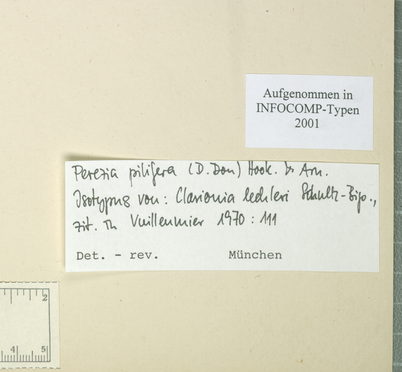 Aufgenommen in
INFOCOMP-Typen
2001
Perezia pilifera (D. Don) Hook. & Arn.
Isotypus von: Clarionia lechleri Schultz-Bip.,
zit. in Vuilleumier 1970 : 111
Det. - rev. München
2
4 5